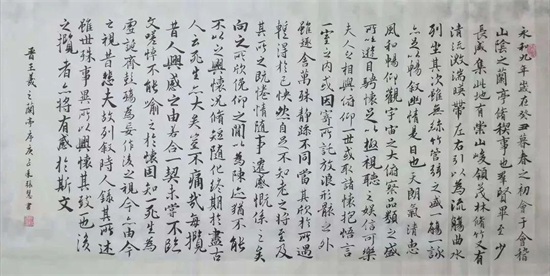 永和九年歲在癸丑暮春之初會于會稽
山陰之蘭亭脩稧事也羣賢畢至少
長咸集此地有崇山峻領茂林脩竹又有
清流激湍暎帶左右引以為流觴曲水
列坐其次雖無絲竹管弦之盛一觴一詠
亦足以暢叙幽情是日也天朗氣清惠
風和暢仰觀宇宙之大俯察品類之盛
所以遊目騁懷足以極視聽之娛信可樂也
夫人之相與俯仰一世或取諸懷抱悟言
一室之内或因寄所託放浪形骸之外
雖趣舍萬殊静躁不同當其欣於所遇
暫得於己快然自足不知老之將至及
其所之既惓情隨事遷感慨係之矣
向之所欣俛仰之間以為陳迹猶不能
不以之興懷況脩短隨化終期於盡古
人云死生亦大矣豈不痛哉每攬
昔人興感之由若合一契未嘗不臨
文嗟悼不能喻之於懷固知一死生為
虛誕齊彭殤為妄作後之視今亦由今
之視昔悲夫故列叙時人録其所述
雖世殊事異所以興懷其致一也後
之攬者亦將有感於斯文
晉王羲之蘭亭序庚子書